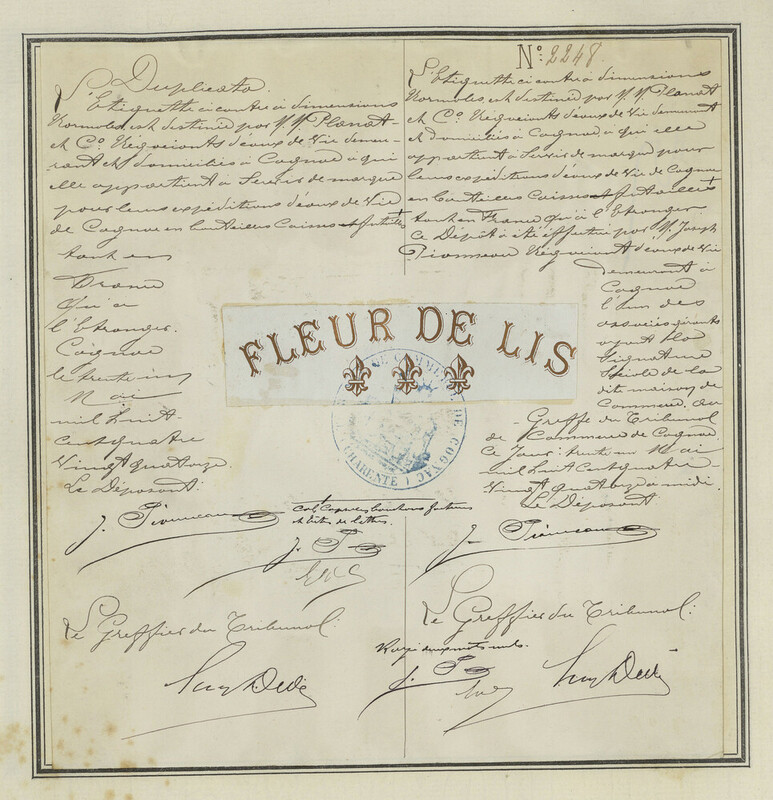 Duplicata.
L'Etiquette ci contre à dimensions
Normales est destinée par M.M. Planat
et Co. Négociants d'eaux de Vie demeu-
rant et domiciliés à Cognac à qui
elle appartient à Servir de marque
pour leurs expéditions d'eaux de Vie
de Cognac en bouteilles Caisses et futailles
tant en
France
qu'à
l'Etranger.
Cognac
le trente un
Mai
mil huit
cent quatre
Vingt quatorze
Le Déposant:
J. Pionneau
No: 2248
L'Etiquette ci contre à dimensions
Normales est destinée par M.M. Planat
et Co. Négociants d'eaux de Vie demeurant
et domiciliés à Cognac, à qui elle
appartient à Servir de marque pour
leurs expéditions d'eaux de Vie de Cognac
en bouteilles Caisses et futailles
tant en France qu'à l'Etranger.
Ce Dépôt a été effectué par M. Joseph
Pionneau Négociant d'eaux de Vie
demeurant à
Cognac
l'un des
associés gérants
ayant la
Signature
Sociale de la
dite maison de
Commerce. Au
Greffe du Tribunal
de Commerce de Cognac
Ce Jour: trente un Mai
mil huit cent quatre-
Vingt quatorze à midi.
Le Déposant
J. Pionneau
FLEUR DE LIS
DE COMMERCE DE COGNAC
CHARENTE
Capsules bouchons factures
et têtes de lettres.
J. P
Le Greffier du Tribunal:
Rayé deux mots nuls.
J. P
Le Greffier du Tribunal: